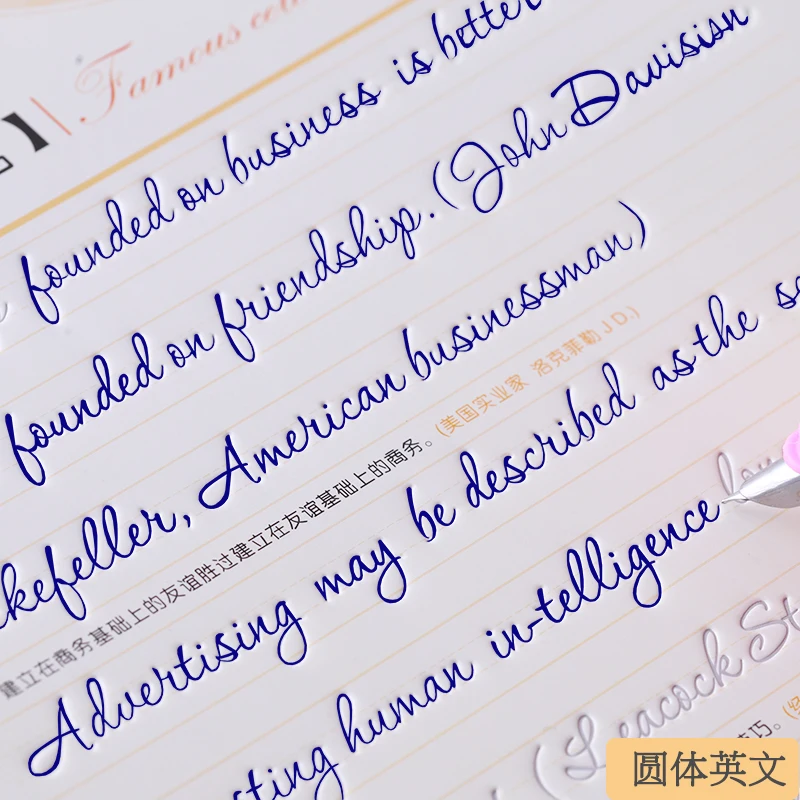 】 Famous
founded on business is better
founded on friendship. (John Davisisn
kefeller, American businessman)
建立在商务基础上的友谊胜过建立在友谊基础上的商务。(美国实业家 洛克菲勒 J D.)
Advertising may be described as the
ting human in-telligence
(Leacock St
圆体英文